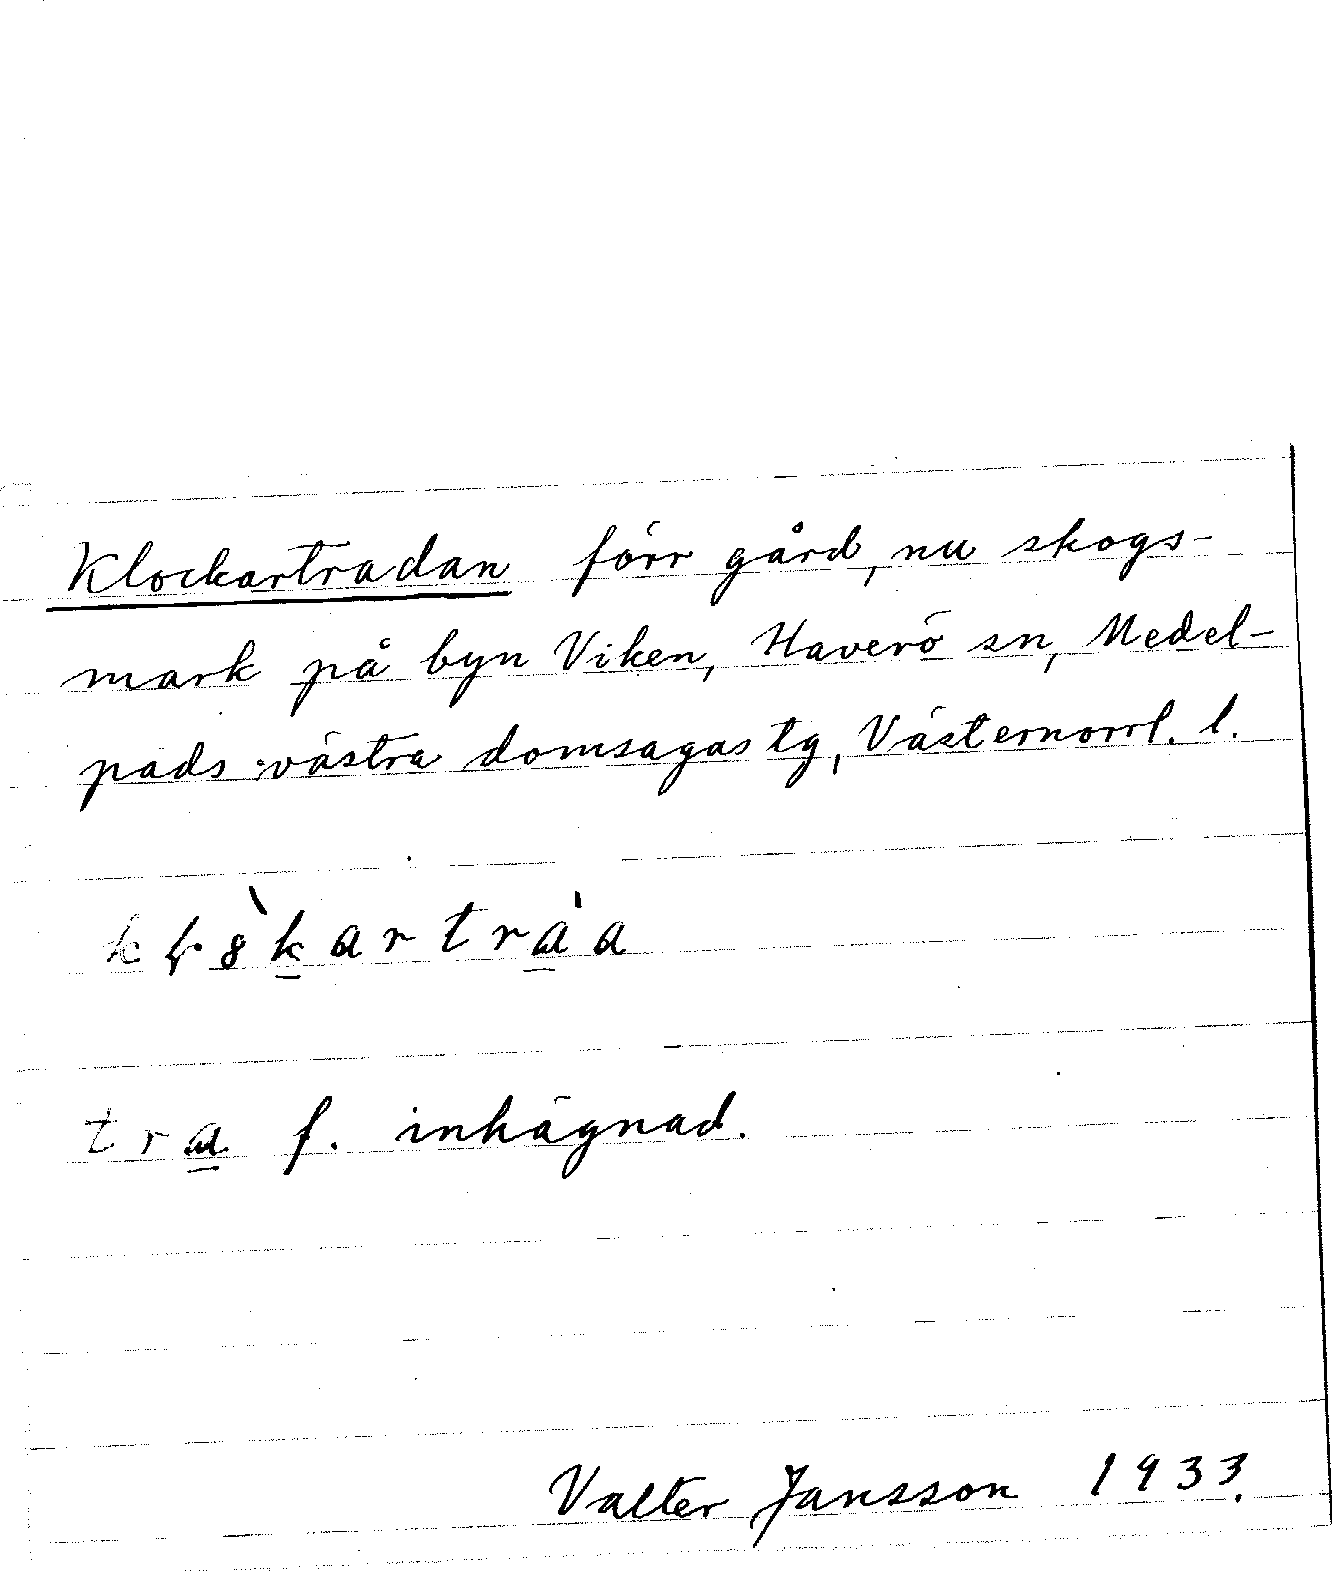 Klockartradan förr gård, nu skogs-
mark på byn Viken, Haverö sn, Medel-
pads västra domsagas tg, Västernorrl. l.
tra f. inhägnad.
Valter Jansson 1933.